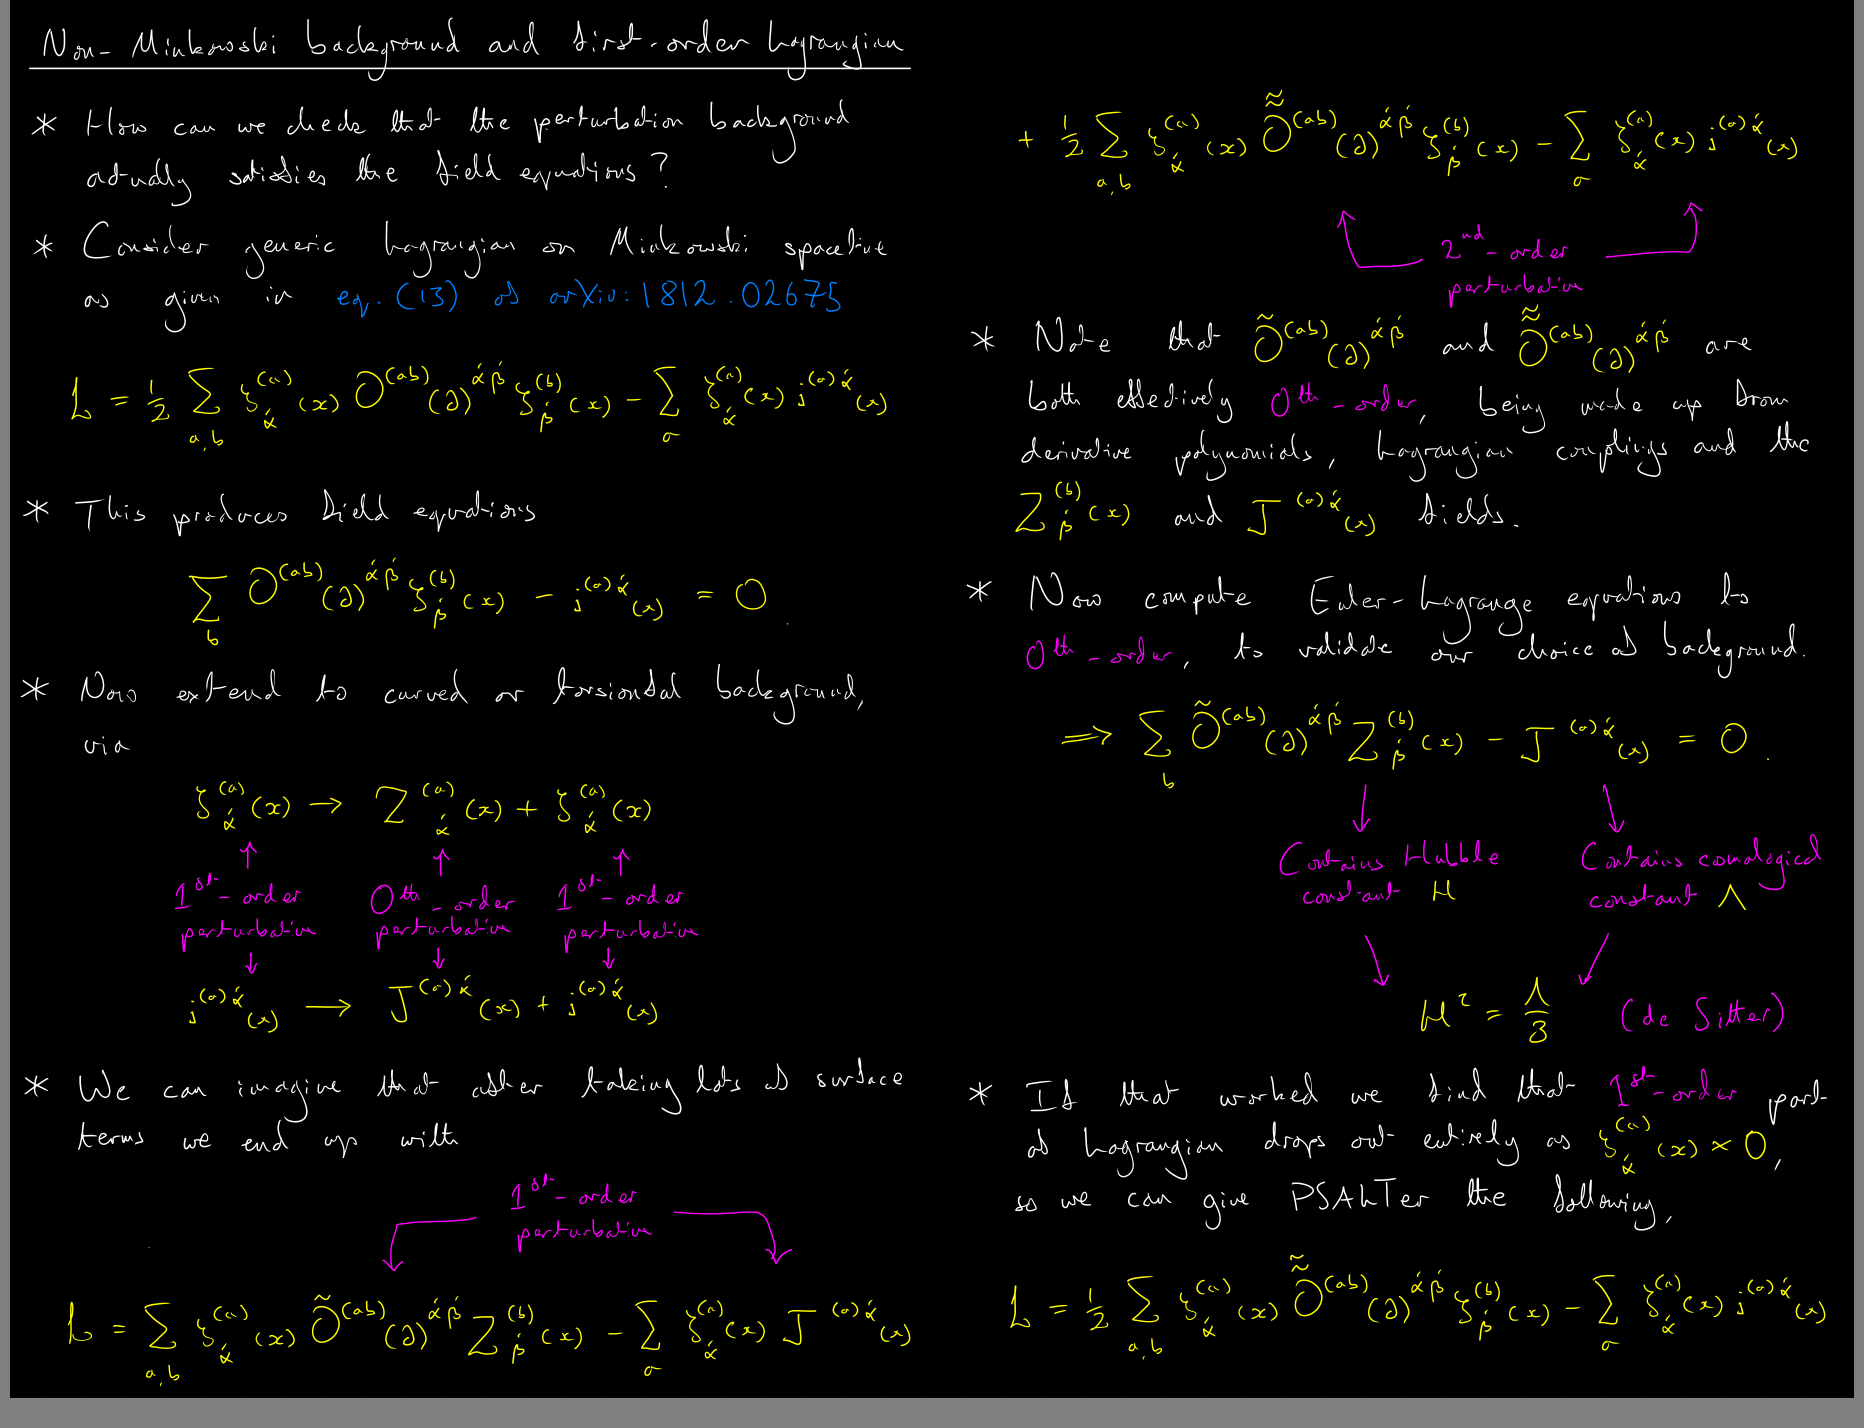 Non-Minkowski background and first-order Lagrangian
* How can we check that the perturbation background
actually satisfies the field equations?
* Consider generic Lagrangian on Minkowski spacetime
as given in eq. (13) of arXiv:1812.02675
L = ½ Σ_{a,b} ζ^{(a)}_{ά}(x) O^{(ab)}(∂)^{άβ́} ζ^{(b)}_{β́}(x) − Σ_a ζ^{(a)}_{ά}(x) j^{(a)ά}(x)
* This produces field equations
Σ_b O^{(ab)}(∂)^{άβ́} ζ^{(b)}_{β́}(x) − j^{(a)ά}(x) = 0.
* Now extend to curved or torsionful background,
via
ζ^{(a)}_{ά}(x) → Z^{(a)}_{ά}(x) + ζ^{(a)}_{ά}(x)
1st-order perturbative 0th-order perturbative 1st-order perturbative
j^{(a)ά}(x) → J^{(a)ά}(x) + j^{(a)ά}(x)
* We can imagine that after taking lots of surface
terms we end up with
1st-order
perturbative
L = Σ_{a,b} ζ^{(a)}_{ά}(x) Õ^{(ab)}(∂)^{άβ́} Z^{(b)}_{β́}(x) − Σ_a ζ^{(a)}_{ά}(x) J^{(a)ά}(x)
+ ½ Σ_{a,b} ζ^{(a)}_{ά}(x) Õ̃^{(ab)}(∂)^{άβ́} ζ^{(b)}_{β́}(x) − Σ_a ζ^{(a)}_{ά}(x) j^{(a)ά}(x)
2nd-order
perturbative
* Note that Õ^{(ab)}(∂)^{άβ́} and Õ̃^{(ab)}(∂)^{άβ́} are
both effectively 0th-order, being made up from
derivative polynomials, Lagrangian couplings and the
Z^{(b)}_{β́}(x) and J^{(a)ά}(x) fields.
* Now compute Euler-Lagrange equations to
0th-order, to validate our choice of background.
⟹ Σ_b Õ^{(ab)}(∂)^{άβ́} Z^{(b)}_{β́}(x) − J^{(a)ά}(x) = 0.
Contains Hubble Contains comological
constant H constant Λ
H² = Λ/3 (de Sitter)
* If that worked we find that 1st-order part
of Lagrangian drops out entirely as ζ^{(a)}_{ά}(x) × 0,
so we can give PSALTer the following,
L = ½ Σ_{a,b} ζ^{(a)}_{ά}(x) Õ̃^{(ab)}(∂)^{άβ́} ζ^{(b)}_{β́}(x) − Σ_a ζ^{(a)}_{ά}(x) j^{(a)ά}(x)